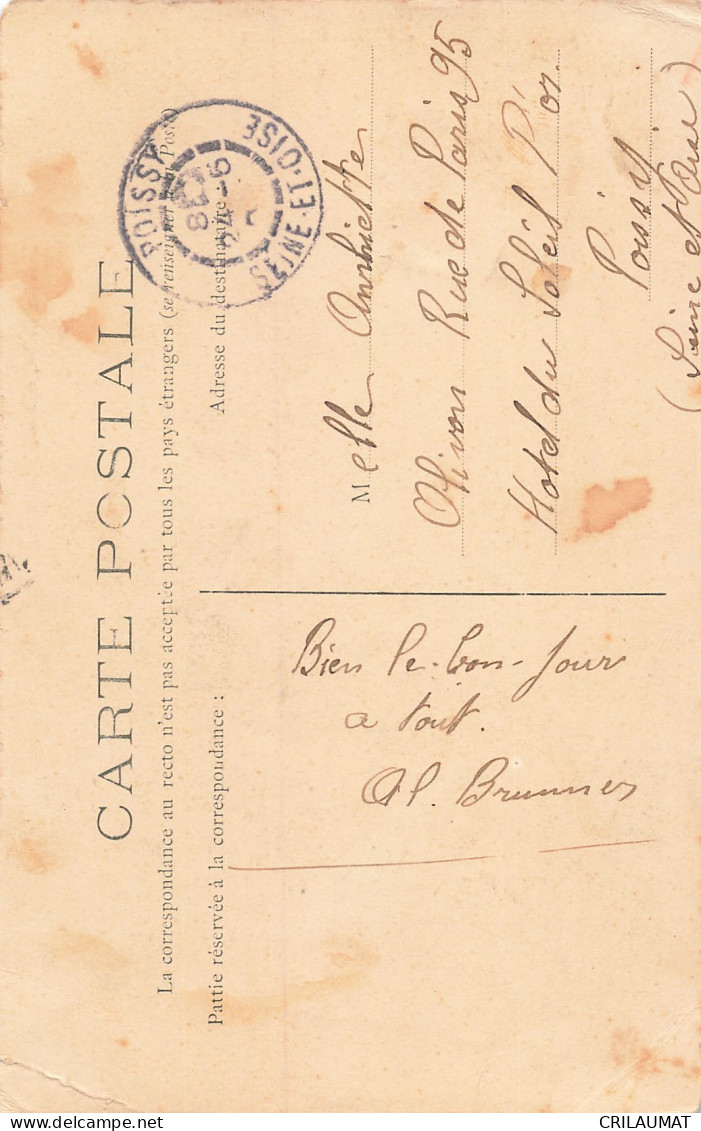 CARTE POSTALE
La correspondance au recto n'est pas acceptée par tous les pays étrangers (se renseigner à la Poste)
Pattie réservée à la correspondance :
Adresse du destinataire
POISSY
SEINE-ET-OISE
Bien le-bon-Jour
a tout.
Al. Brunner
Melle
Olivon Rue de Paris 95
Hotel du Soleil D'or.
Poissy
(Seine et Oise)
CRILAUMAT